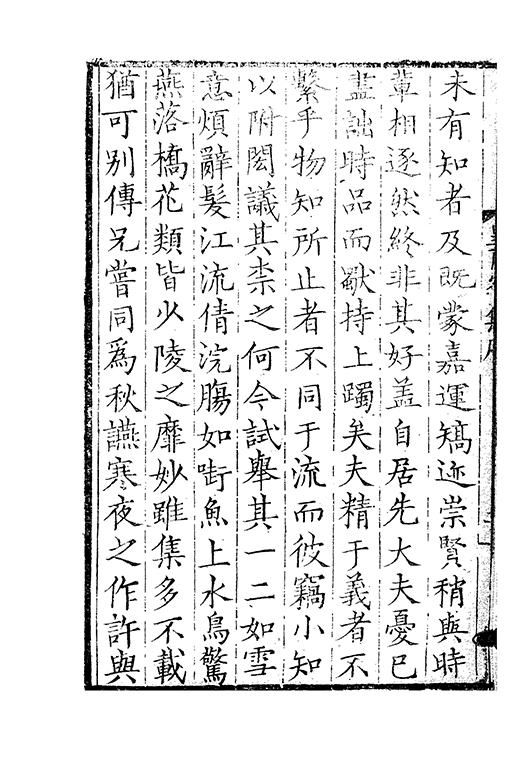 未有知者及既蒙嘉運矯迹崇賢稍與時
軰相逐然終非其好盖自居先大夫憂已
盡詘時品而獻持上躅矣夫精于義者不
繫乎物知所止者不同于流而彼竊小知
以附閎議其柰之何今試舉其一二如雪
意煩辭髮江流倩浣膓如啣魚上水鳥驚
燕落橋花類皆少陵之靡妙雖集多不載
猶可別傳兄嘗同爲秋讌寒夜之作許與